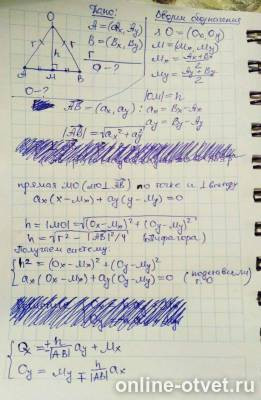 Дано:
A = (ax, Ay)
B = (Bx, By)
r
O - ?
O
r
r
h
A
M
B
O - ?
Вводим обозначения
O = (Ox, Oy)
M = (Mx, My)
Mx = Ax+Bx / 2
My = Ay+By / 2
|OM| = h
AB = (ax, ay) : ax = Bx - Ax
ay = By - Ay
|AB| = √ax² + ay²
прямая MO (MO ⊥ AB) по точке и ⊥
ax (x - Mx) + ay (y - My) = 0
h = |MO| = √(Ox - Mx)² + (Oy - My)²
h = √r² - |AB|²/4 (Пифагора)
Получаем систему
{ h² = (Ox - Mx)² + (Oy - My)²
ax (Ox - Mx) + ay (Oy - My) = 0 (подставили т. O)
{ Ox = ± h/|AB| ay + Mx
Oy = My ∓ h/|AB| ax
online-otvet.ru